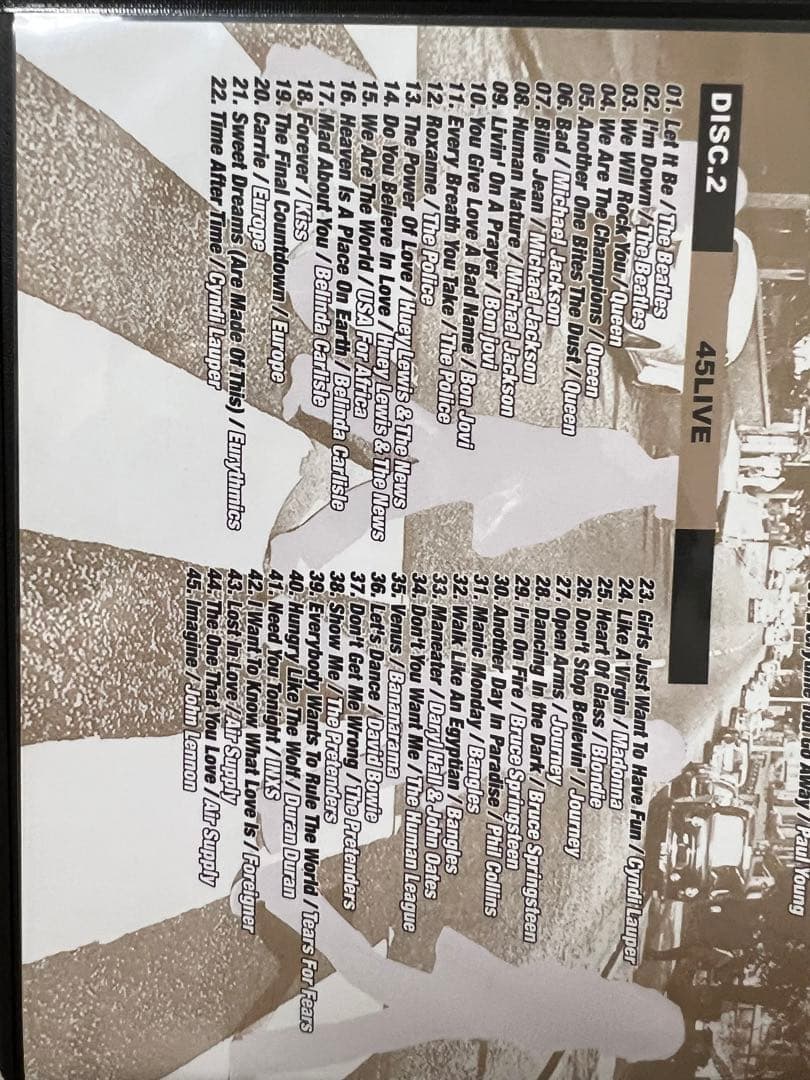 Away / Paul Young
DISC.2
45LIVE
01. Let It Be / The Beatles
02. I'm Down / The Beatles
03. We Will Rock You / Queen
04. We Are The Champions / Queen
05. Another One Bites The Dust / Queen
06. Bad / Michael Jackson
07. Billie Jean / Michael Jackson
08. Human Nature / Michael Jackson
09. Livin' On A Prayer / Bon jovi
10. You Give Love A Bad Name / Bon Jovi
11. Every Breath You Take / The Police
12. Roxanne / The Police
13. The Power Of Love / Huey Lewis & The News
14. Do You Believe In Love / Huey Lewis & The News
15. We Are The World / USA For Africa
16. Heaven Is A Place On Earth / Belinda Carlisle
17. Mad About You / Belinda Carlisle
18. Forever / Kiss
19. The Final Countdown / Europe
20. Carrie / Europe
21. Sweet Dreams (Are Made Of This) / Eurythmics
22. Time After Time / Cyndi Lauper
23. Girls Just Want To Have Fun / Cyndi Lauper
24. Like A Virgin / Madonna
25. Heart Of Glass / Blondie
26. Don't Stop Believin' / Journey
27. Open Arms / Journey
28. Dancing In the Dark / Bruce Springsteen
29. I'm On Fire / Bruce Springsteen
30. Another Day In Paradise / Phil Collins
31. Manic Monday / Bangles
32. Walk Like An Egyptian / Bangles
33. Maneater / Daryl Hall & John Oates
34. Don't You Want Me / The Human League
35. Venus / Bananarama
36. Let's Dance / David Bowie
37. Don't Get Me Wrong / The Pretenders
38. Show Me / The Pretenders
39. Everybody Wants To Rule The World / Tears For Fears
40. Hungry Like The Wolf / Duran Duran
41. Need You Tonight / INXS
42. I Want To Know What Love Is / Foreigner
43. Lost In Love / Air Supply
44. The One That You Love / Air Supply
45. Imagine / John Lennon